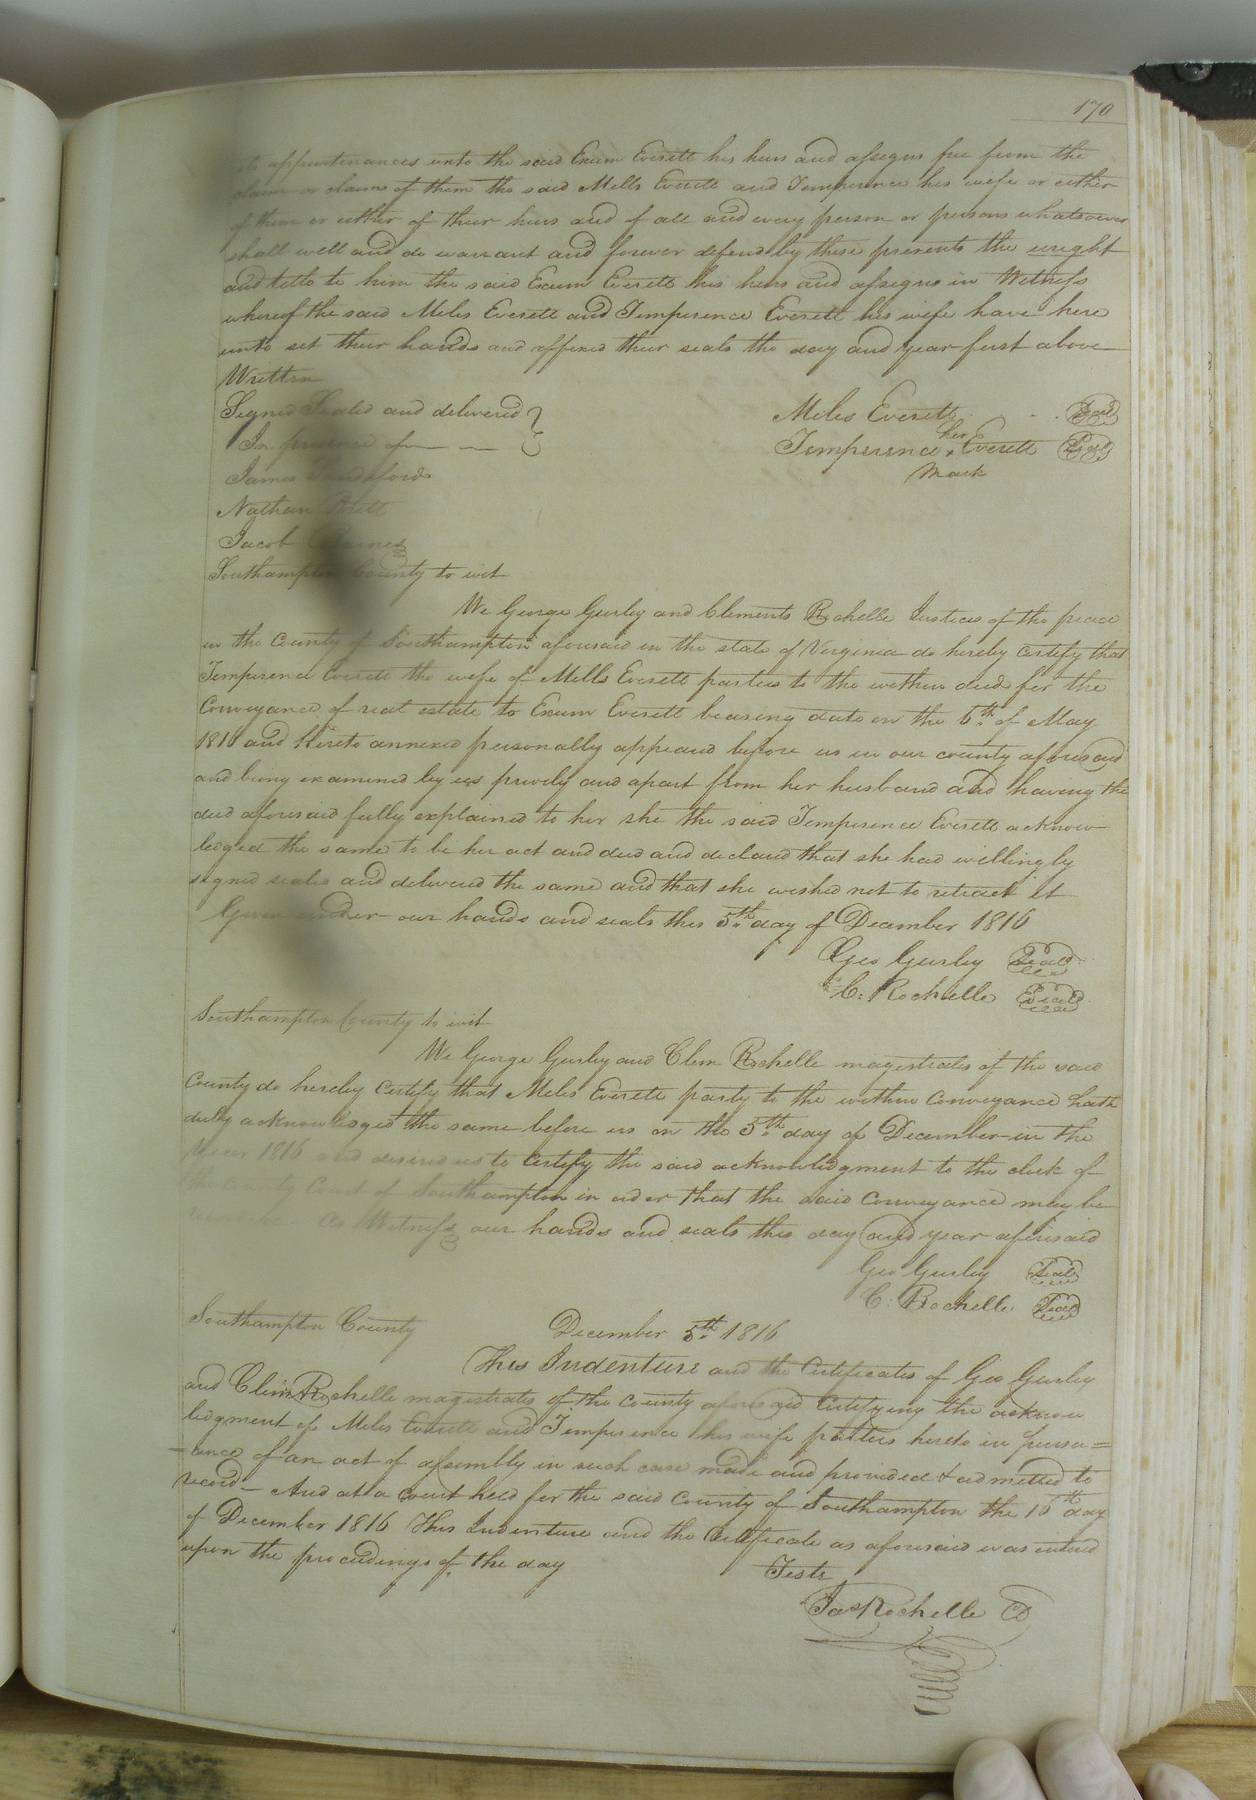 170
its appurtenances unto the said Exum Everett his heirs and assigns free from the
claim or claims of them the said Mills Everett and Temperence his wife or either
of them or either of their heirs and of all and every person or persons whatsoever
shall well and do warrant and forever defend by these presents the wright
and title to him the said Exum Everett his heirs and assigns in Witness
whereof the said Miles Everett and Temperence Everett his wife have here
unto set their hands and affixed their seals the day and year first above
Written
Signed Sealed and delivered
In presence of
Miles Everett Seal
Temperence her x mark Everett Seal
James
Nathan
Jacob Barnes
Southampton County to wit
We George Gurley and Clements Rochelle Justices of the peace
in the County of Southampton aforesaid in the state of Verginia do hereby certify that
Temperence Everett the wife of Mills Everett parties to the within deed for the
Conveyance of real estate to Exum Everett bearing date on the 6th of May
1816 and hereto annexed personally appeared before us in our county aforesaid
and being examined by us privily and apart from her husband and having the
deed aforesaid fully explained to her she the said Temperence Everett acknow
ledged the same to be her act and deed and declared that she had willingly
signed sealed and delivered the same and that she wished not to retract it
Given under our hands and seals this 5th day of December 1816
Geo Gurley Seal
C: Rochelle Seal
Southampton County to wit
We George Gurley and Clem Rochelle magistrates of the said
County do hereby certify that Miles Everett party to the within Conveyance hath
duly acknowledged the same before us on the 5th day of December in the
Year 1816 and desired us to certify the said acknowledgment to the clerk of
the County Court of Southampton in order that the said Conveyance may be
recorded As Witness our hands and seals this day and year aforesaid
Geo Gurley Seal
C: Rochelle Seal
Southampton County December 5th 1816
This Indenture and the Certificates of Geo Gurley
and Clem Rochelle magistrates of the County aforesaid Certifying the acknow
ledgment of Miles Everett and Temperence his wife parties hereto in pursu=
=ance of an act of assembly in such case made and provided & admitted to
record - And at a Court held for the said County of Southampton the 16th day
of December 1816 This Indenture and the Certificate as aforesaid was entered
upon the proceedings of the day
Teste
Jas Rochelle